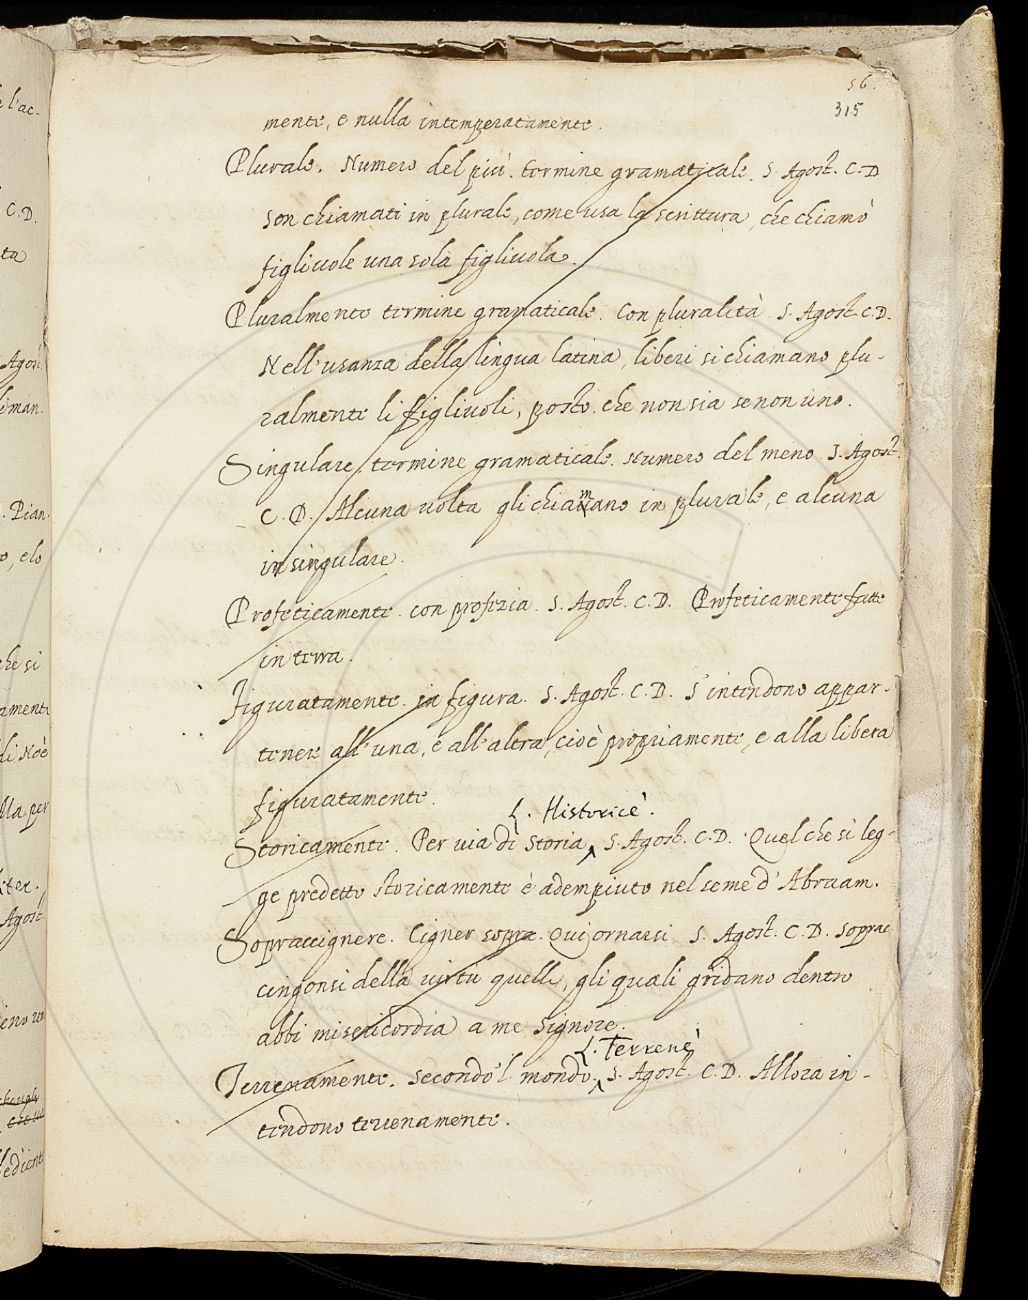 56.
315
mente, e nulla intemperatamente.
Plurale. Numero del più. termine gramaticale. S. Agost. C.D
son chiamati in plurale, come usa la scrittura, che chiamò
figliuole una sola figliuola.
Pluralmente termine gramaticale. Con pluralità. S. Agost. C.D.
Nell'usanza della lingua latina, liberi si chiamano plu-
ralmente li figliuoli, posto, che non sia se non uno.
Singulare, termine gramaticale. Numero del meno. S. Agost.
C. D. Alcuna volta gli chiamano in plurale, e alcuna
in singulare.
Profeticamente. con profezia. S. Agost. C.D. Profeticamente fatte
in terra.
Figuratamente. in figura. S. Agost. C.D. S'intendono appar-
tenere all'una, e all'altra, cioè propriamente, e alla libera
figuratamente.
L. Historicè.
Storicamente. Per via di Storia, S. Agost. C.D. Quel che si leg-
ge predetto storicamente è adempiuto nel seme d'Abraam.
Sopraccignere. Cigner sopra. Qui ornarsi S. Agost. C.D. soprac
cingonsi della virtu quelli, gli quali gridano dentro
abbi misericordia a me Signore.
L. Terrenè
Terrenamente. secondo 'l mondo, S. Agost. C.D. Allora in-
tendono terrenamente.
l'ac-
C.D.
ta
Agost.
Pian-
o, e lo
che si
di Noè
lla per
Agost.